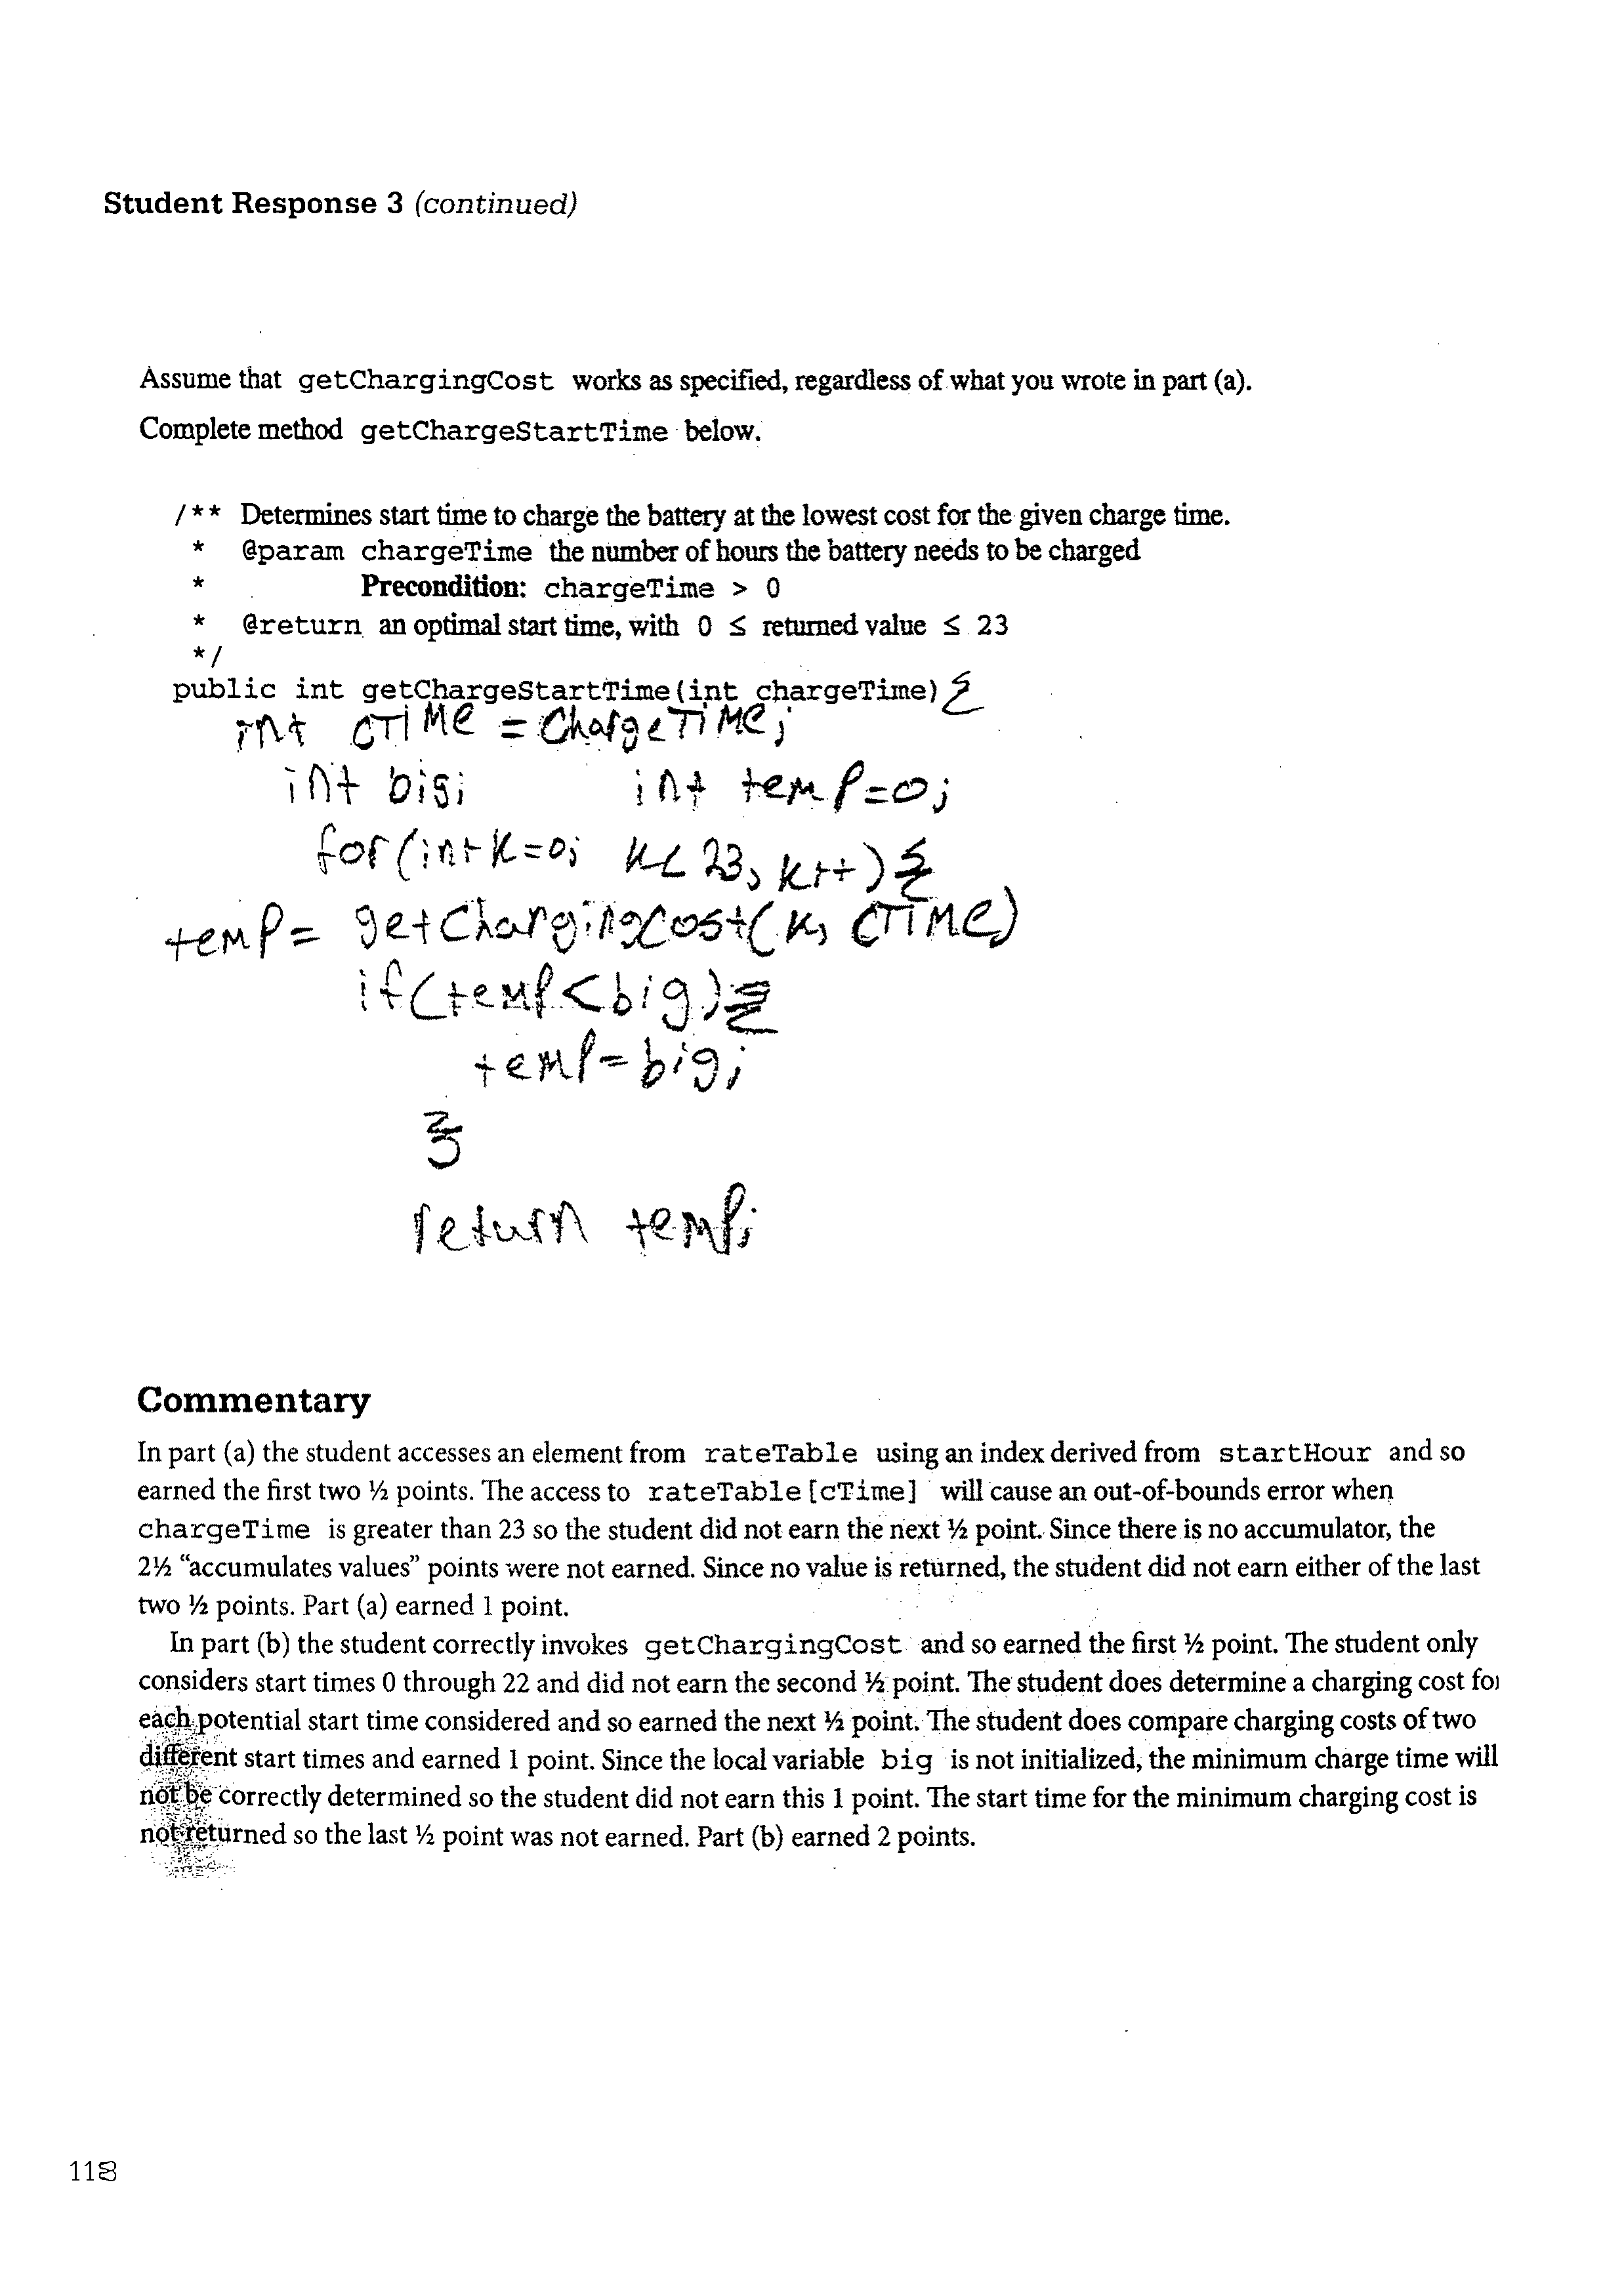 Student Response 3 (continued)
Assume that getChargingCost works as specified, regardless of what you wrote in part (a).
Complete method getChargeStartTime below.
/** Determines start time to charge the battery at the lowest cost for the given charge time.
* @param chargeTime the number of hours the battery needs to be charged
* Precondition: chargeTime > 0
* @return an optimal start time, with 0 ≤ returned value ≤ 23
*/
public int getChargeStartTime(int chargeTime) {
int CTIMe = ChargeTiMe;
int big; int temp=0;
for(int k=0; k< 23, k++) {
temp= getChargingCost(k, CTIMe)
if(temp<big){
temp=big;
}
return temp;
Commentary
In part (a) the student accesses an element from rateTable using an index derived from startHour and so
earned the first two ½ points. The access to rateTable[cTime] will cause an out-of-bounds error when
chargeTime is greater than 23 so the student did not earn the next ½ point. Since there is no accumulator, the
2½ “accumulates values” points were not earned. Since no value is returned, the student did not earn either of the last
two ½ points. Part (a) earned 1 point.
In part (b) the student correctly invokes getChargingCost and so earned the first ½ point. The student only
considers start times 0 through 22 and did not earn the second ½ point. The student does determine a charging cost for
each potential start time considered and so earned the next ½ point. The student does compare charging costs of two
different start times and earned 1 point. Since the local variable big is not initialized, the minimum charge time will
not be correctly determined so the student did not earn this 1 point. The start time for the minimum charging cost is
not returned so the last ½ point was not earned. Part (b) earned 2 points.
118